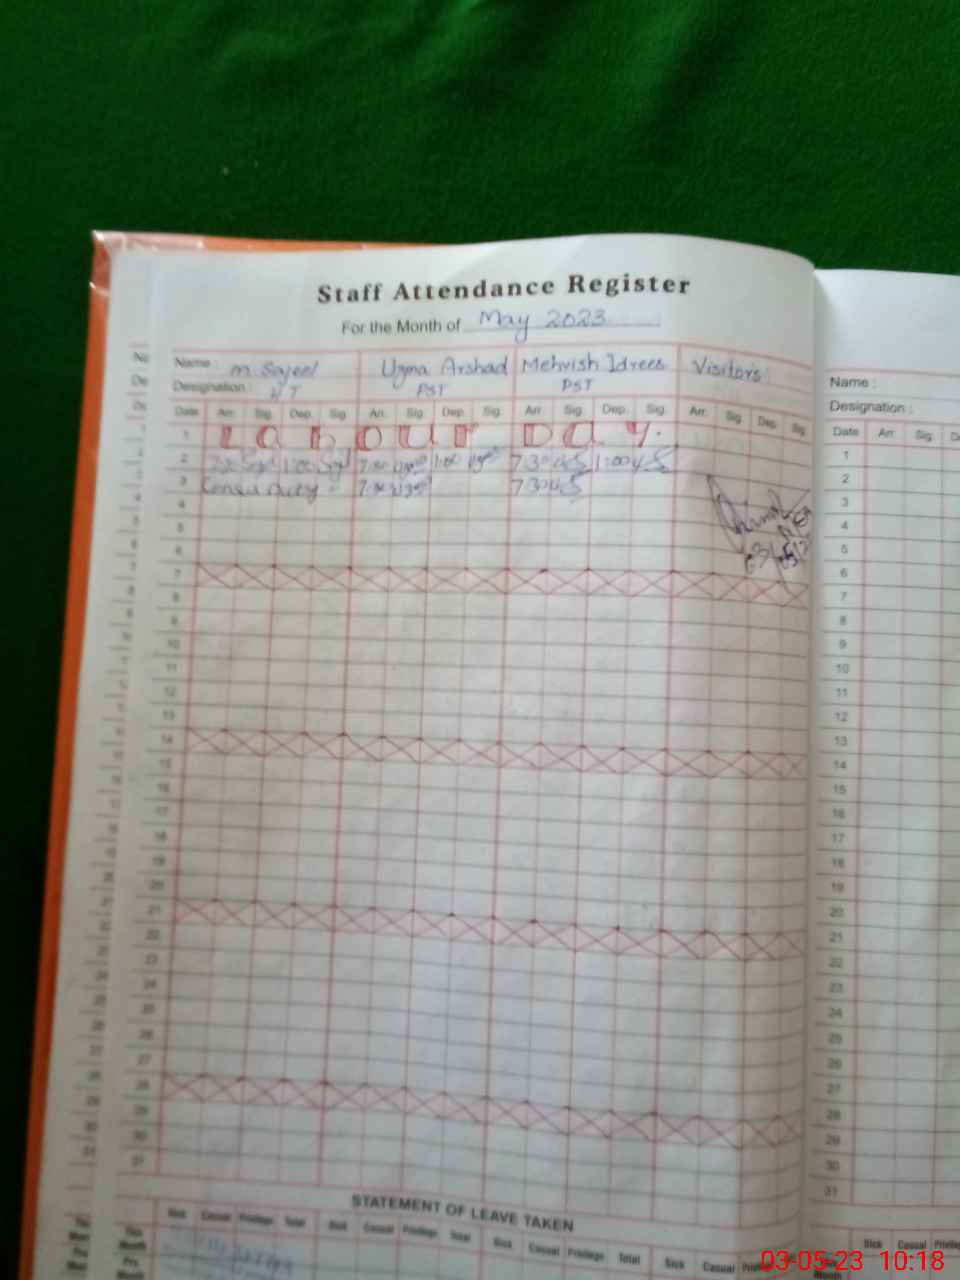 Staff Attendance Register
For the Month of May 2023
Name : M Sajeel Uzma Arshad Mehvish Idrees Visitors
Designation : HT PST PST
Date Arr. Sig. Dep. Sig. Arr. Sig. Dep. Sig. Arr. Sig. Dep. Sig. Arr. Sig. Dep. Sig.
1 LABOUR DAY.
2 7:30 1:00 7:30 1:00 7:30 1:00
3 Census duty 7:30 7:30
4
5
6
7
8
9
10
11
12
13
14
15
16
17
18
19
20
21
22
23
24
25
26
27
28
29
30
31
STATEMENT OF LEAVE TAKEN
Sick Casual Privilege Total Sick Casual Privilege Total Sick Casual Privilege Total Sick Casual
This Month
Prs. Month
Name :
Designation :
Date Arr. Sig.
1
2
3
4
5
6
7
8
9
10
11
12
13
14
15
16
17
18
19
20
21
22
23
24
25
26
27
28
29
30
31
Sick Casual
03-05-23 10:18